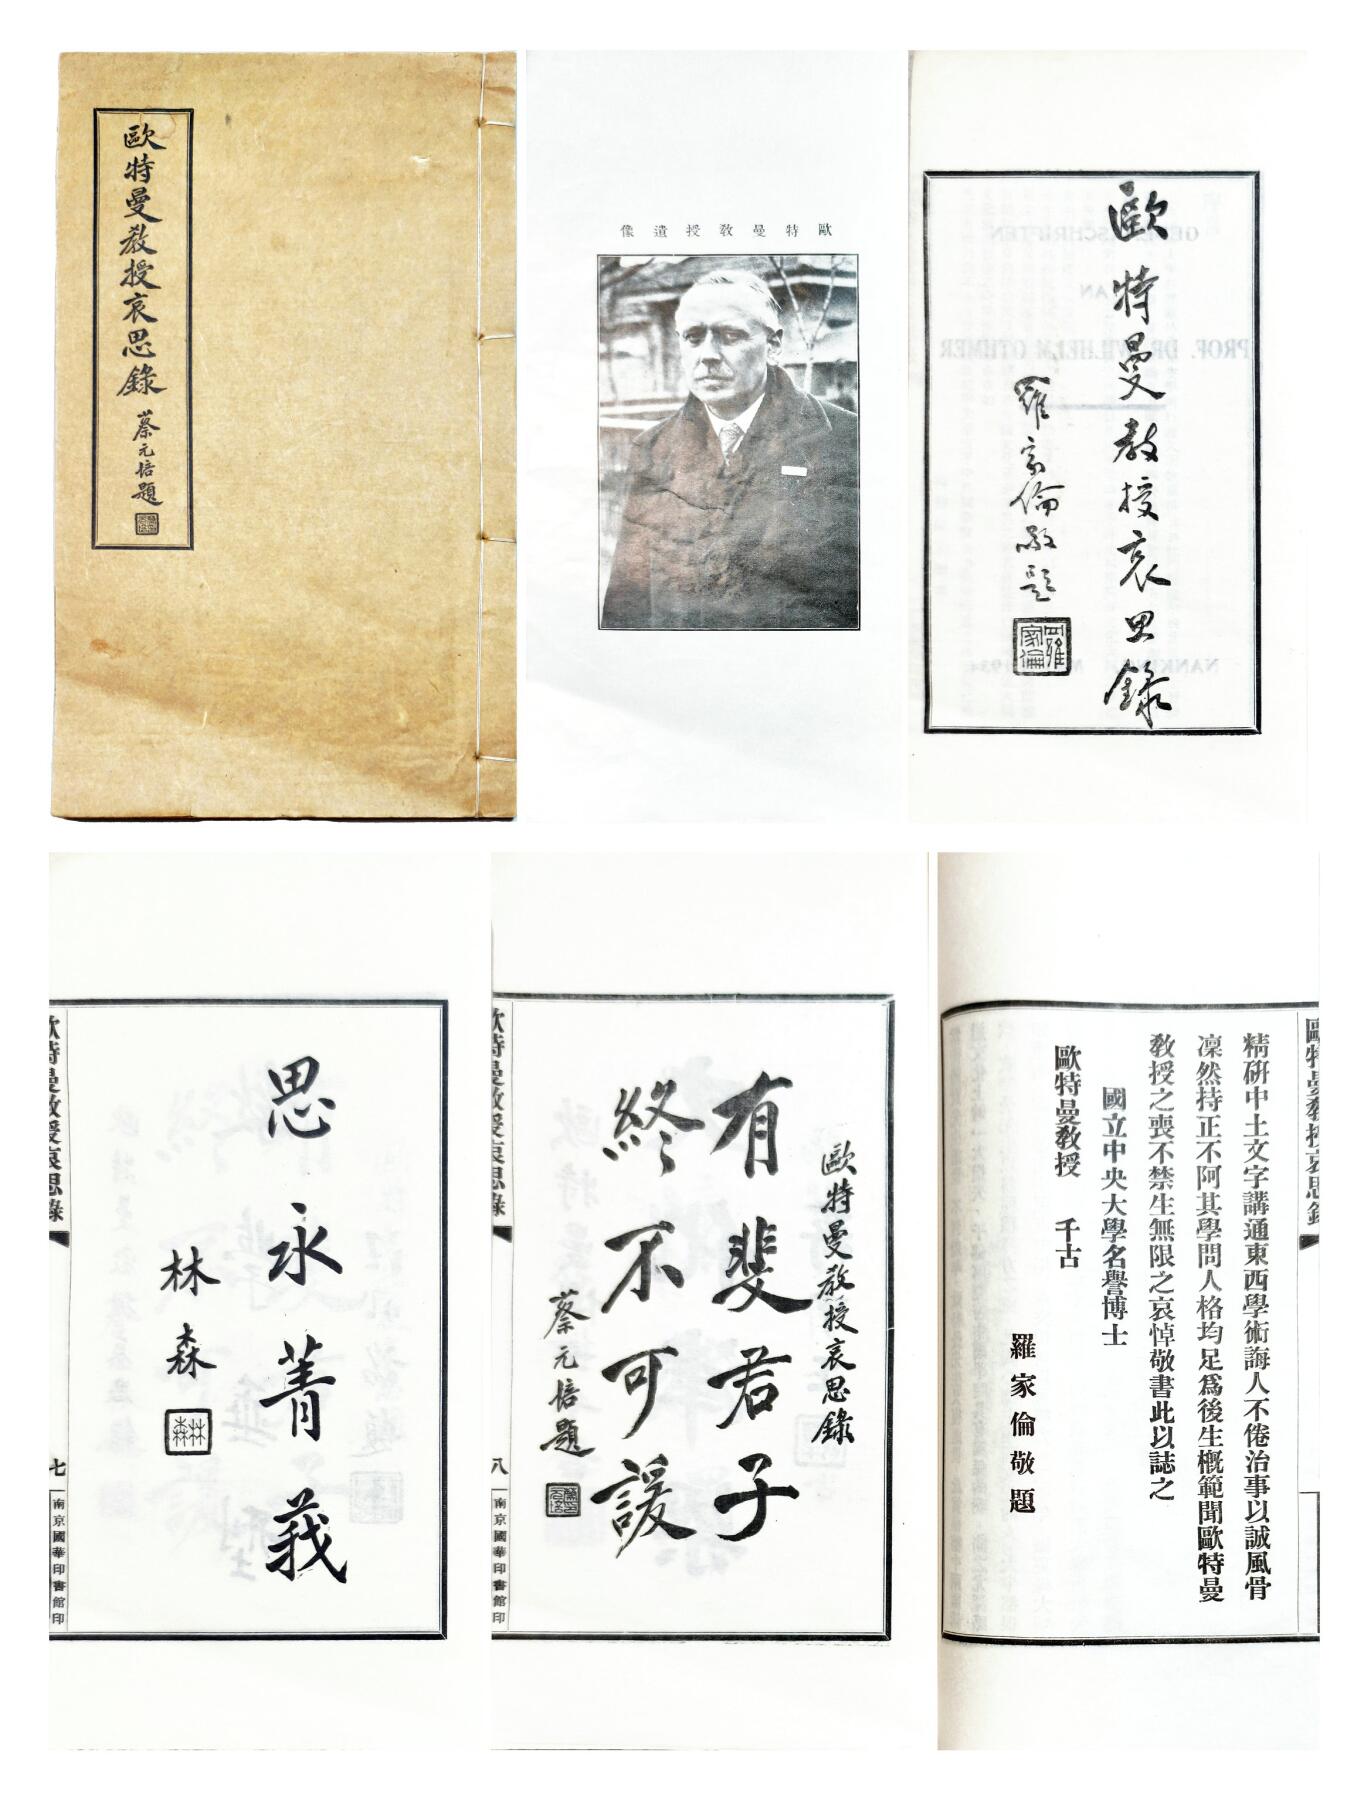 歐特曼教授哀思錄
蔡元培題
歐特曼教授遺像
歐特曼教授哀思錄
羅家倫敬題
羅家倫
PROF. DR. WILHELM OTHMER
思永菁莪
林森
林森
歐特曼教授哀思錄
七
南京國華印書館印
歐特曼教授哀思錄
有斐君子
終不可諼
蔡元培題
歐特曼教授哀思錄
八
南京國華印書館印
歐特曼教授哀思錄
精研中土文字講通東西學術誨人不倦治事以誠風骨
凜然持正不阿其學問人格均足爲後生楷範聞歐特曼
教授之喪不禁生無限之哀悼敬書此以誌之
國立中央大學名譽博士
歐特曼教授 千古
羅家倫敬題